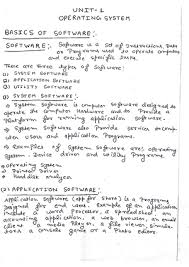 UNIT-1
OPERATING SYSTEM
BASICS OF SOFTWARE:
SOFTWARE: Software is a set of instructions, data
or Programs used to operate computers
and execute specific tasks.
There are three types of software:
1) SYSTEM SOFTWARE
2) APPLICATION SOFTWARE
3) UTILITY SOFTWARE
1) SYSTEM SOFTWARE:
System Software is computer software designed to
operate the computer hardware and to provide a
platform for running application software.
System Software also Provide service
between user and application Programs.
Examples of System Software are: operating
System, Device driver and utility Programs
Example:
Printer driver
Hard disk analyzer
(2) APPLICATION SOFTWARE:
Application Software (app for short) is a Programs
Designed for end users. Example of an application
include a word processor, a spreadsheet, an
accounting application, a web browser, an email
client, a media player, a file viewer, simulators
or a Photo editor.